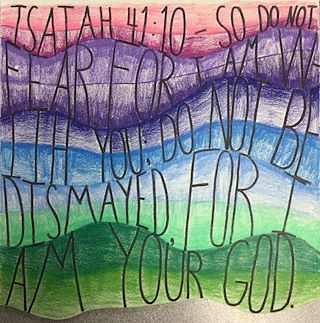 ISAIAH 41:10 - SO DO NOT
FEAR, FOR I AM W-
ITH YOU, DO NOT BE
DISMAYED, FOR I
AM YOUR GOD.